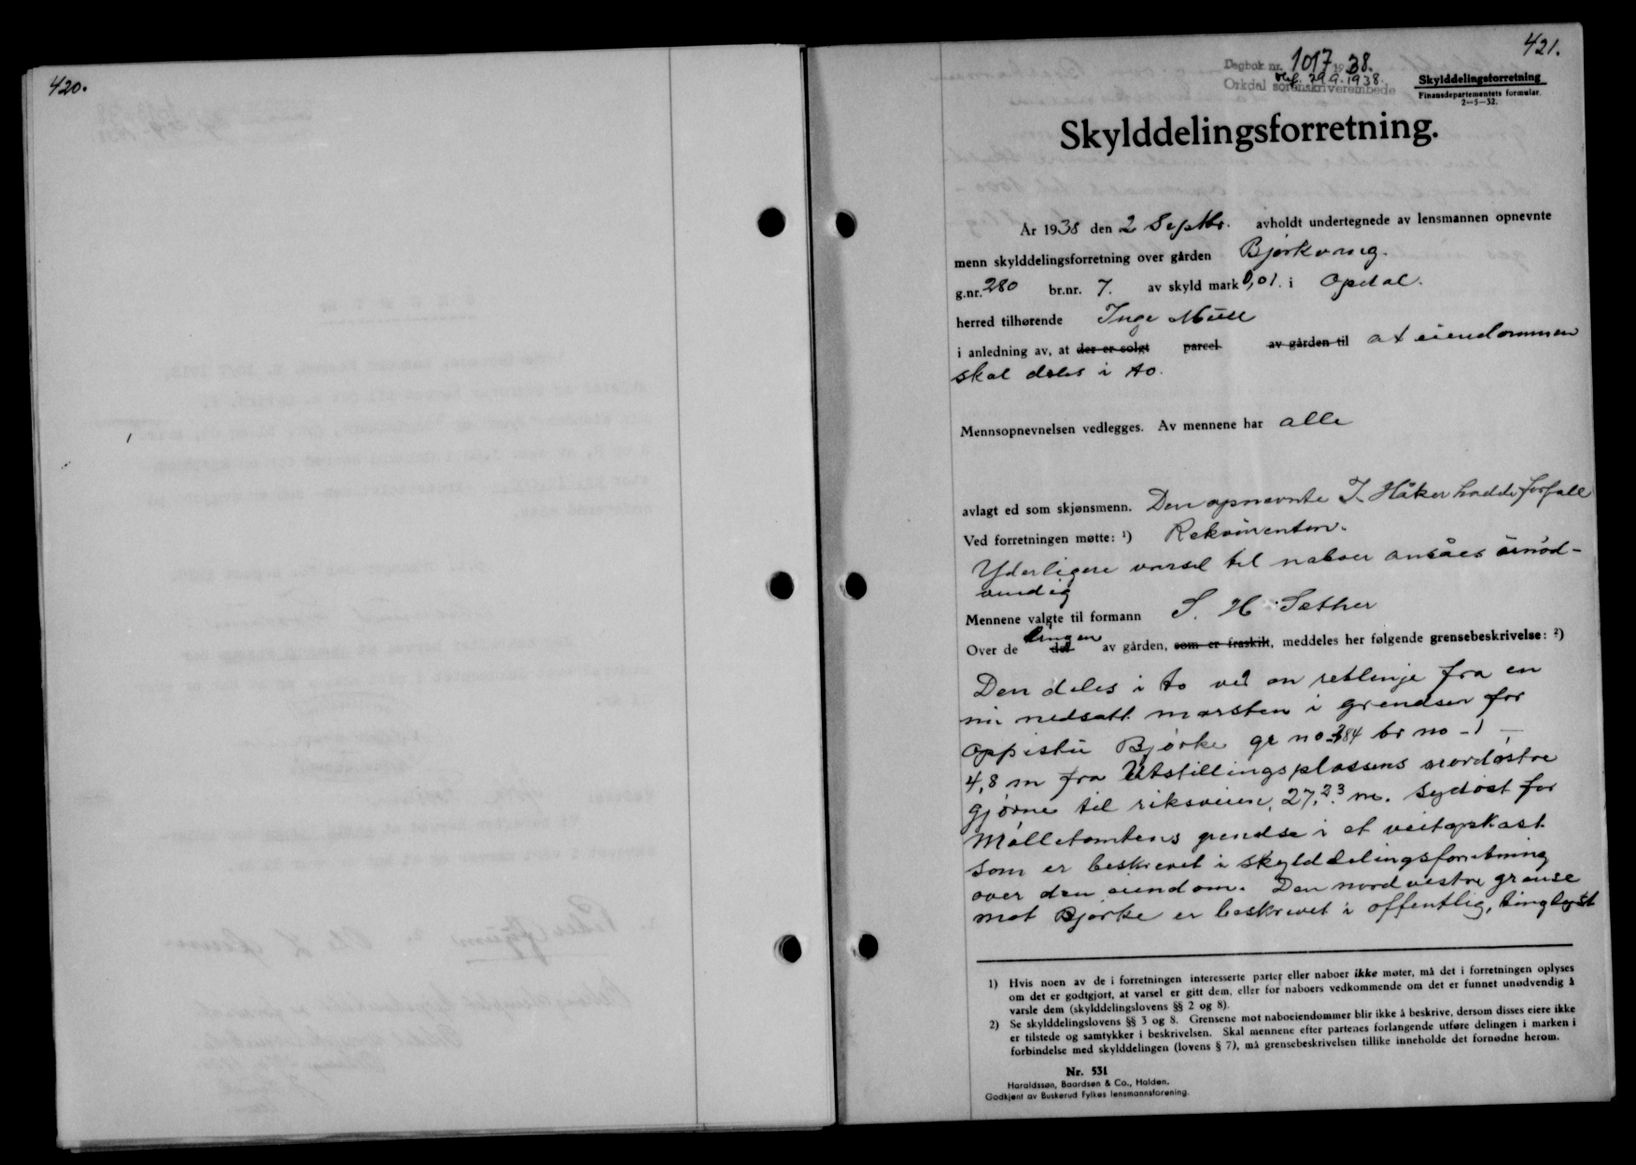 420.
421.
Dagbok nr. 1017 1938.
ref. 29.9.1938.
Orkdal sorenskriverembede
Skylddelingsforretning
Finansdepartementets formular.
2—5—32.
Skylddelingsforretning.
År 1938 den 2 Septbr. avholdt undertegnede av lensmannen opnevnte
menn skylddelingsforretning over gården Bjørkvang.
g.nr. 280 br.nr. 7. av skyld mark 0,01. i Opdal.
herred tilhørende Inge
i anledning av, at der er solgt parcel av gården til at eiendommen
skal deles i to.
Mennsopnevnelsen vedlegges. Av mennene har alle
avlagt ed som skjønsmenn. Den opnevnte I. Håker hadde forfall
Ved forretningen møtte: ¹) Rekvirenten.
Yderligere varsel til naboer ansåes unød-
vendig
Mennene valgte til formann S. H. Sæther
Over de lingen del av gården, som er fraskilt, meddeles her følgende grensebeskrivelse: ²)
Den deles i to ved en retlinje fra en
nu nedsatt marsten i grendsen for
oppistu Bjørke gr no 284 br no - 1 -
4,8 m fra Utstillingsplassens nordøstre
gjørne til riksveien, 27,23 m. sydøst for
Mølletomtens grendse i et veitopkast
som er beskrevet i skylddelingsforretning
over den eiendom. Den nordvestre grense
mot Bjørke er beskrevet i offentlig, tinglyst
1) Hvis noen av de i forretningen interesserte parter eller naboer ikke møter, må det i forretningen oplyses
om det er godtgjort, at varsel er gitt dem, eller for naboers vedkommende om det er funnet unødvendig å
varsle dem (skylddelingslovens §§ 2 og 8).
2) Se skylddelingslovens §§ 3 og 8. Grensene mot naboeiendommer blir ikke å beskrive, dersom disses eiere ikke
er tilstede og samtykker i beskrivelsen. Skal mennene efter partenes forlangende utføre delingen i marken i
forbindelse med skylddelingen (lovens § 7), må grensebeskrivelsen tillike inneholde det fornødne herom.
Nr. 531
Haraldssøn, Baardsen & Co., Halden.
Godkjent av Buskerud Fylkes lensmannsforening.